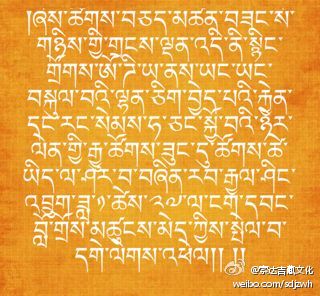 །ཞེས་ཚོགས་བཅད་མཚན་བཟང་ས་
གཉིས་ཀྱི་གྲངས་ལྡན་འདི་ནི་སྙིང་
གྲོགས་ཨོ་ཌི་ཡ་ནས་ཡང་ཡང་
བསྐུལ་བའི་ལྷན་ཅིག་བྱེད་པའི་རྐྱེན་
དང་རང་སེམས་ཧ་ཅང་སྐྱོ་བའི་ཉེར་
ལེན་གྱི་རྒྱུ་ཚོགས་ཟུང་དུ་ཚོགས་ཚེ་
ཡིད་ལ་ཤར་བ་བཞིན་རབ་རྒྱལ་ཤིང་
འབྲུག་ཟླ་༡་ཚེས་༢༧་ལ་ངག་དབང་
བློ་གྲོས་མཚུངས་མེད་ཀྱིས་སྤེལ་བ་
དགེ་ལེགས་འཕེལ།། །།
@宗达吉藏文化
weibo.com/sdjzwh